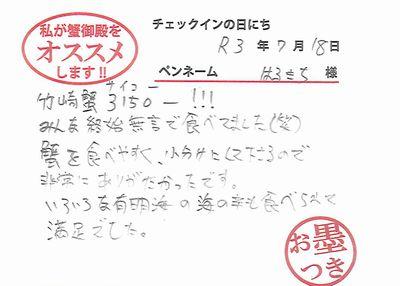 私が蟹御殿を
オススメ
します!!
チェックインの日にち
R3年7月18日
ペンネーム はるきち 様
サイコー
竹崎蟹 3150ー!!!
みんな終始無言で食べてました(笑)
蟹を食べやすく、小分けにして下さるので
非常にありがたかったです。
いろいろな有明海の海の幸も食べられて
満足でした。
お墨
つき